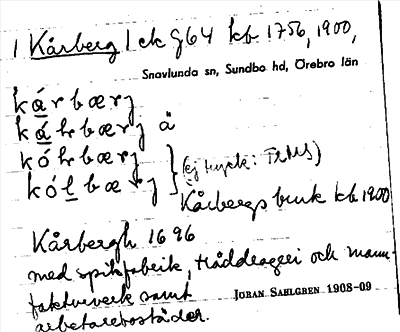 1 Kårberg 1 ek G64 kb 1756, 1900,
Snavlunda sn, Sundbo hd, Örebro län
kárbærj
káhrbærj å
kóhrbærj
kólbærj
(ej tryck: TEMS)
Kårbergs bruk kb 1900
Kårbergh 1696
med spikfabrik, tråddrageri och manu-
fakturverk samt
arbetarebostäder.
JÖRAN SAHLGREN 1908-09